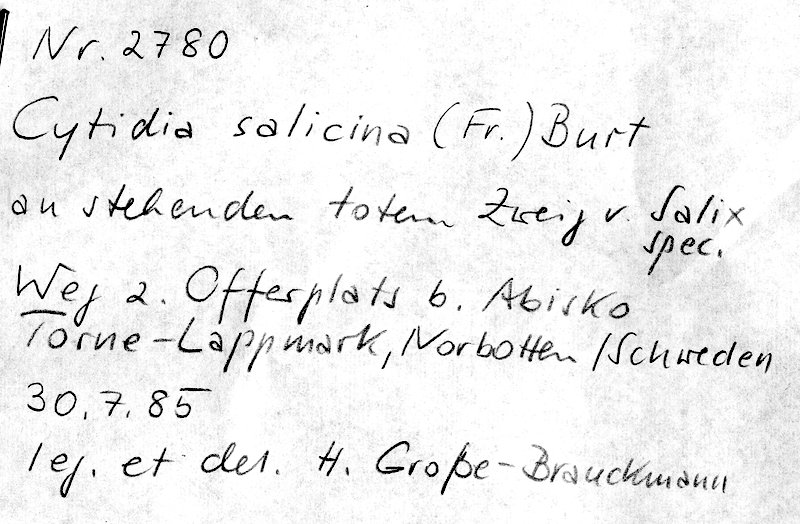 Nr. 2780
Cytidia salicina (Fr.) Burt
an stehenden totem Zweig v. Salix
spec.
Weg z. Offerplats b. Abisko
Torne-Lappmark, Norbotten / Schweden
30.7.85
leg. et det. H. Große-Brauckmann